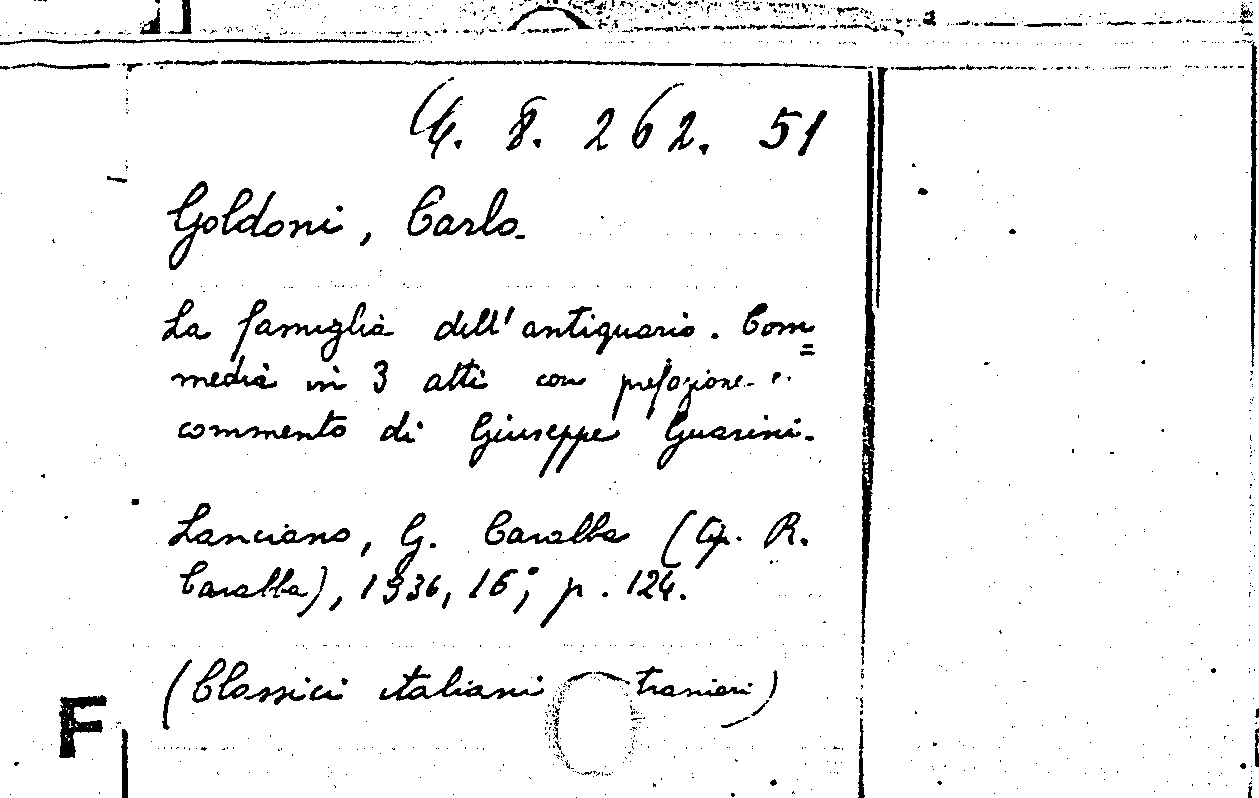 8. 262. 51
Goldoni, Carlo.
La famiglia dell'antiquario. Com=
media in 3 atti con prefazione e
commento di Giuseppe Guarini.
Lanciano, G. Carabba (Tip. R.
Carabba), 1936, 16°, p. 124.
(Classici italiani stranieri)
F